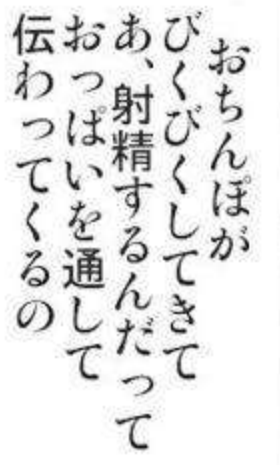 おちんぽが
びくびくしてきて
あ、射精するんだって
おっぱいを通して
伝わってくるの